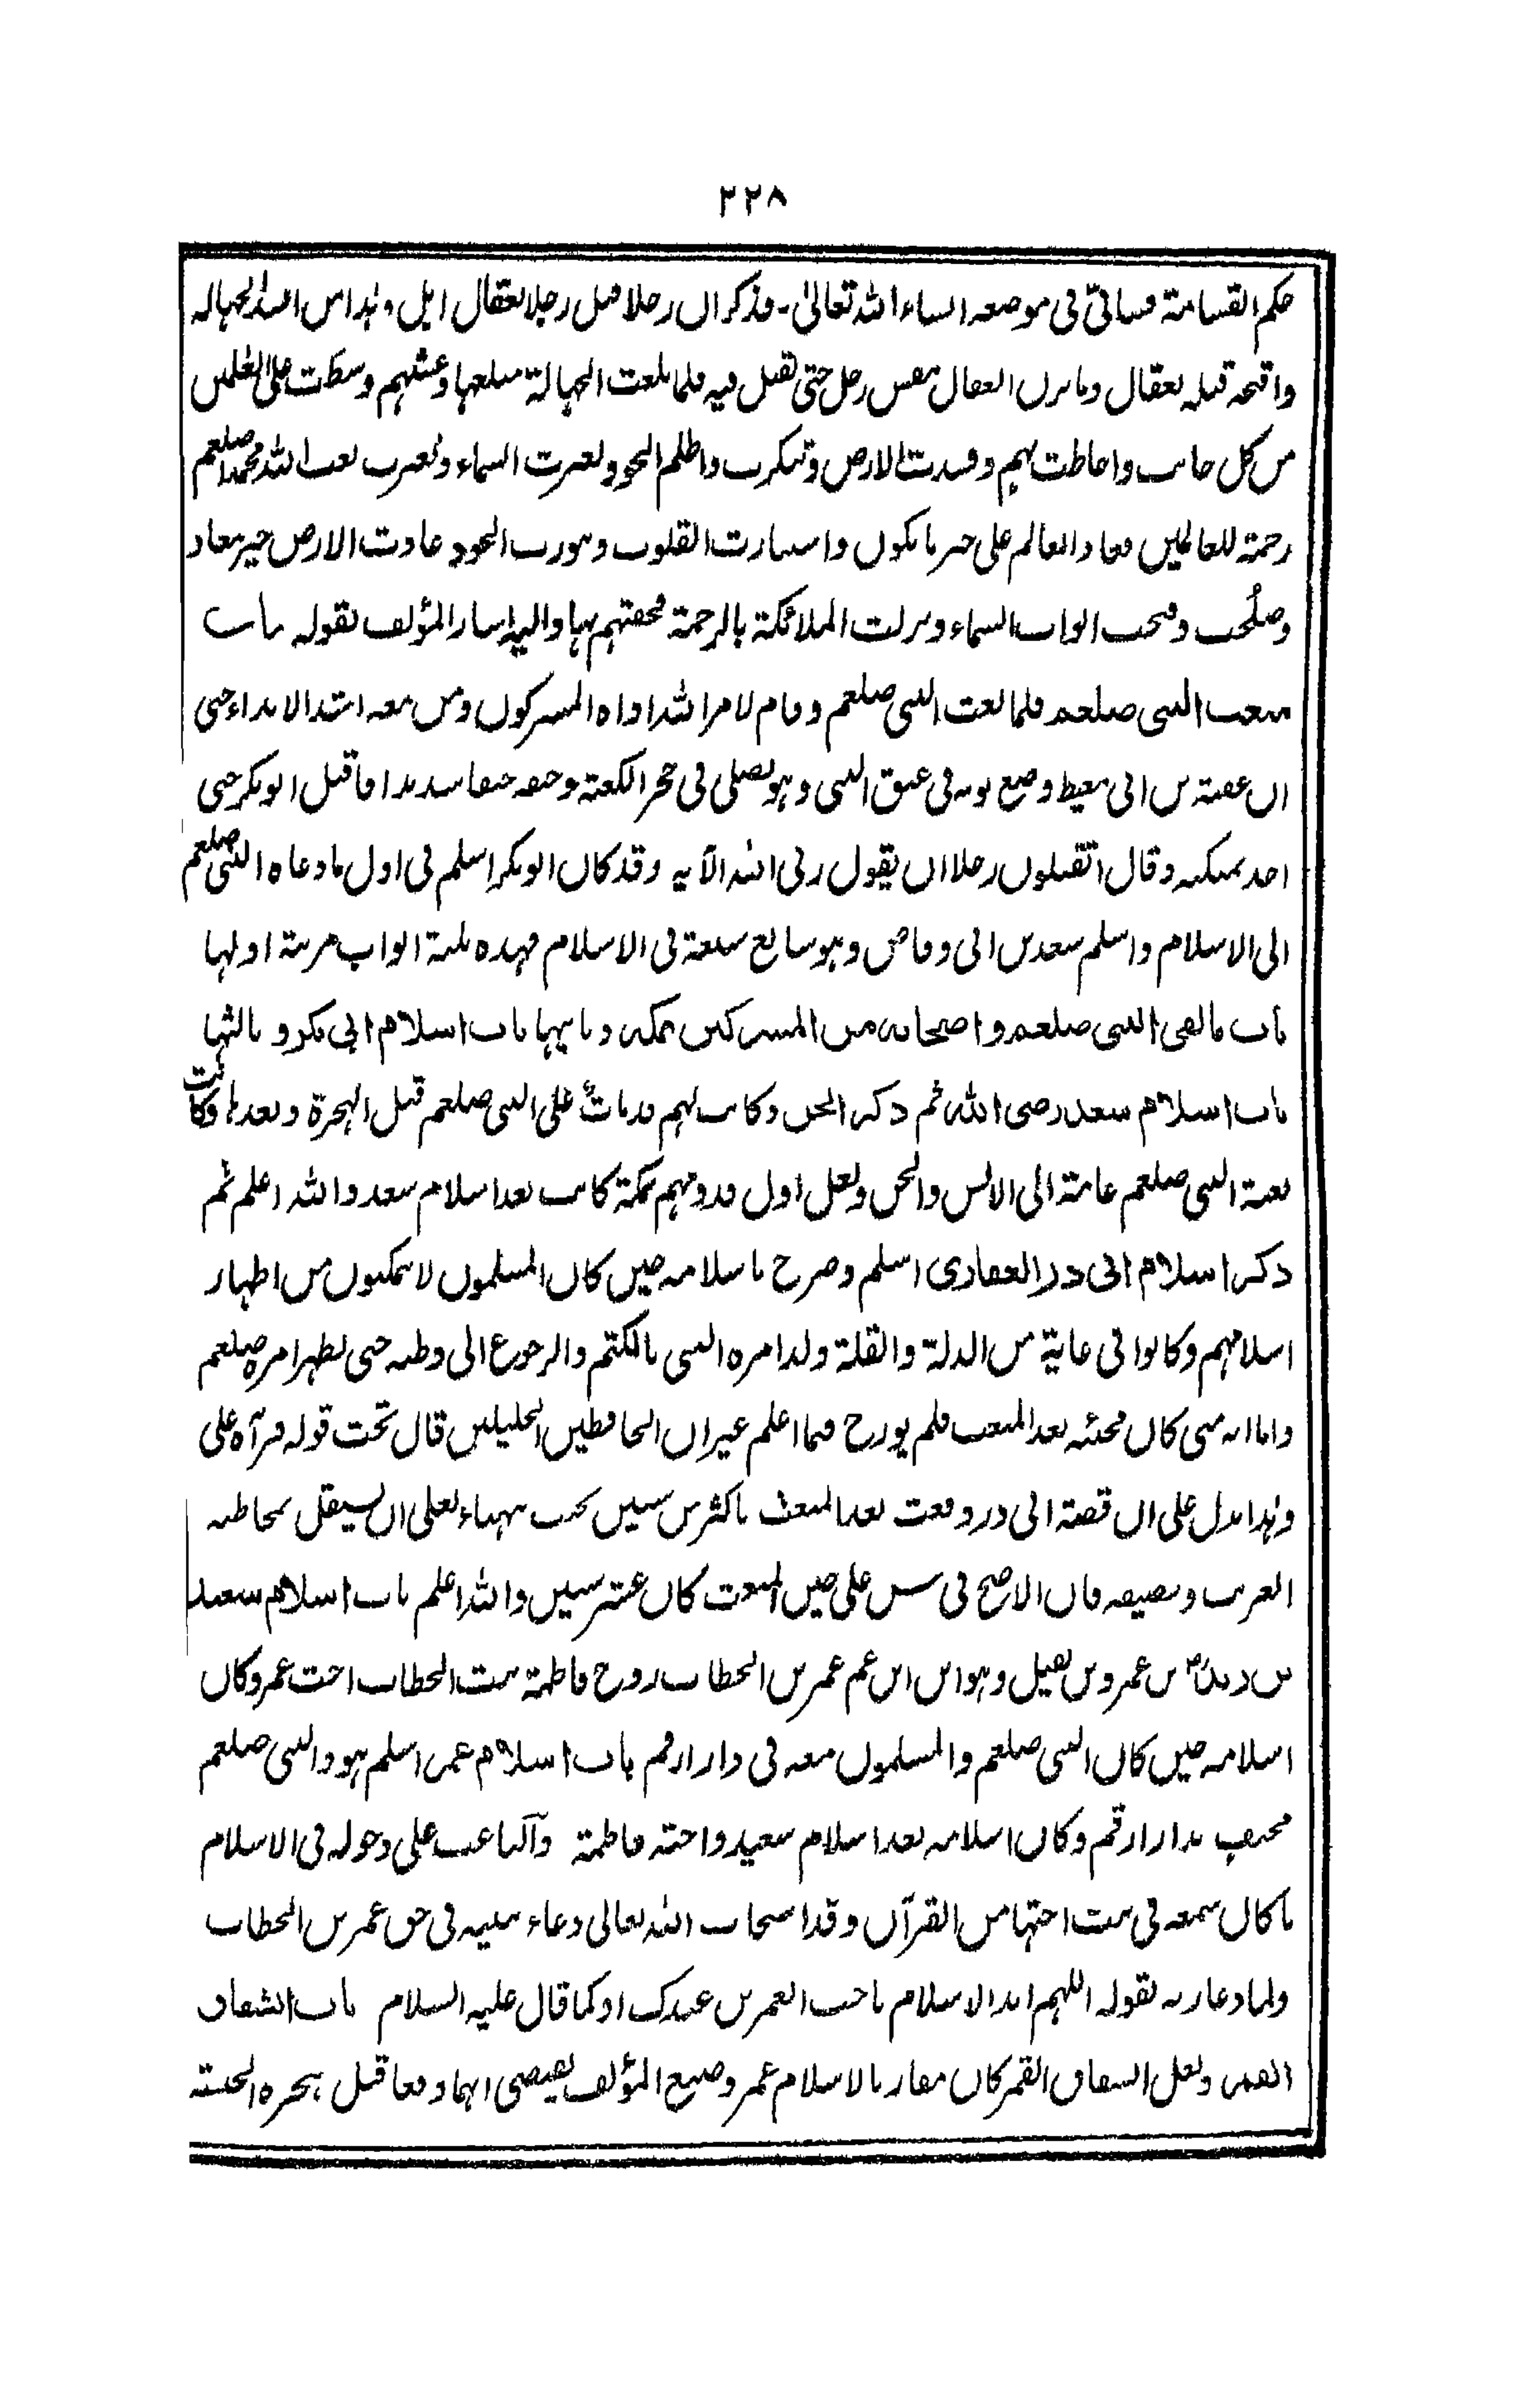 ٢٢٨
حكم القسامة فسياتی فی موضعه انشاء الله تعالیٰ۔ فذكر ان رجلا قتل رجلا بعقال ابل، وہذا من اشد الجہالہ
واقبحہ قتلہ بعقال وما يزن العقال بنفس رجل حتی يقتل فيہ فلما بلغت الجہالة مبلغہا وغشيہم وسطت علی العلمين
من كل جانب واحاطت بہم وفسدت الارض وتكدرت واظلم الجو وتغيرت السماء وتغيرت بعث الله محمدا صلعم
رحمة للعالمين فعاد العالم علی خير ما يكون واستنارت القلوب ونورت الجو وعادت الارض خير معاد
وصلحت وفتحت ابواب السماء ونزلت الملائكة بالرحمة فحفتہم بہا واليہ اشار المؤلف بقولہ باب
مبعث النبی صلعم فلما بعث النبی صلعم وقام لامر الله اذاہ المشركون ومن معہ اشد الايذاء حتی
ان عقبة بن ابی معيط وضع ثوبہ فی عنق النبی وہو يصلی فی حجر الكعبة وخنقہ خنقا شديدا فاقبل ابوبكر حتی
اخذ بمنكبہ وقال اتقتلون رجلا ان يقول ربی الله الآيہ وقد كان ابوبكر اسلم فی اول ما دعاہ النبی صلعم
الی الاسلام واسلم سعد بن ابی وقاص وہو سابع سبعة فی الاسلام فہذہ ثلثة ابواب مرتبة اولہا
باب ما لقی النبی صلعم واصحابہ من المشركين بمكہ وثانيہا باب اسلام ابی بكر وثالثہا
باب اسلام سعد رضی الله ثم ذكر الجن وكانت لہم قدمات علی النبی صلعم قبل الہجرة وبعدہا وكانت
بعثة النبی صلعم عامة الی الانس والجن ولعل اول قدومہم بمكة كانت بعد اسلام سعد والله اعلم ثم
ذكر اسلام ابی ذر الغفاری اسلم وصرح باسلامہ حين كان المسلمون لا يمكنون من اظہار
اسلامہم وكانوا فی غاية من الذلة والقلة ولذا امرہ النبی بالكتم والرجوع الی وطنہ حتی يظہر امرہ صلعم
واما انہ متی كان مجيئہ بعد المبعث فلم يورخ فيما اعلم غير ان الحافظين الجليلين قال تحت قولہ فرآہ علی
وہذا يدل علی ان قصة ابی ذر وقعت بعد المبعث باكثر من سنين بحيث يتہياء لعلی ان يستقل بمخاطبہ
الغريب وتضييفہ فان الاصح فی سن علی حين المبعث كان عشر سنين والله اعلم باب اسلام سعيد
بن زيد بن عمرو بن نفيل وہو ابن ابن عم عمر بن الخطاب زوج فاطمة بنت الخطاب اخت عمر وكان
اسلامہ حين كان النبی صلعم والمسلمون معہ فی دار ارقم باب اسلام عمر اسلم ہو والنبی صلعم
مختف بدار ارقم وكان اسلامہ بعد اسلام سعيد واختہ فاطمة والباعث علی دخولہ فی الاسلام
ما كان سمعہ فی بيت اختہا من القرآن وقد استجاب الله تعالی دعاء نبيہ فی حق عمر بن الخطاب
ولما دعا ربہ بقولہ اللہم ايد الاسلام باحب العمرين عندك او كما قال عليہ السلام باب انشقاق
القمر ولعل انشقاق القمر كان مقاربا لاسلام عمر وصنيع المؤلف يقتضی انہما وقعا قبل ہجرہ الحبشہ